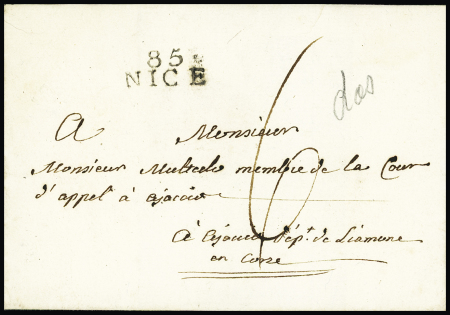 85
NICE
dos
6
A Monsieur
Monsieur Multedo membre de la Cour
d'appel à ajaccio
à ajaccio dép.t de Liamone
en Corse